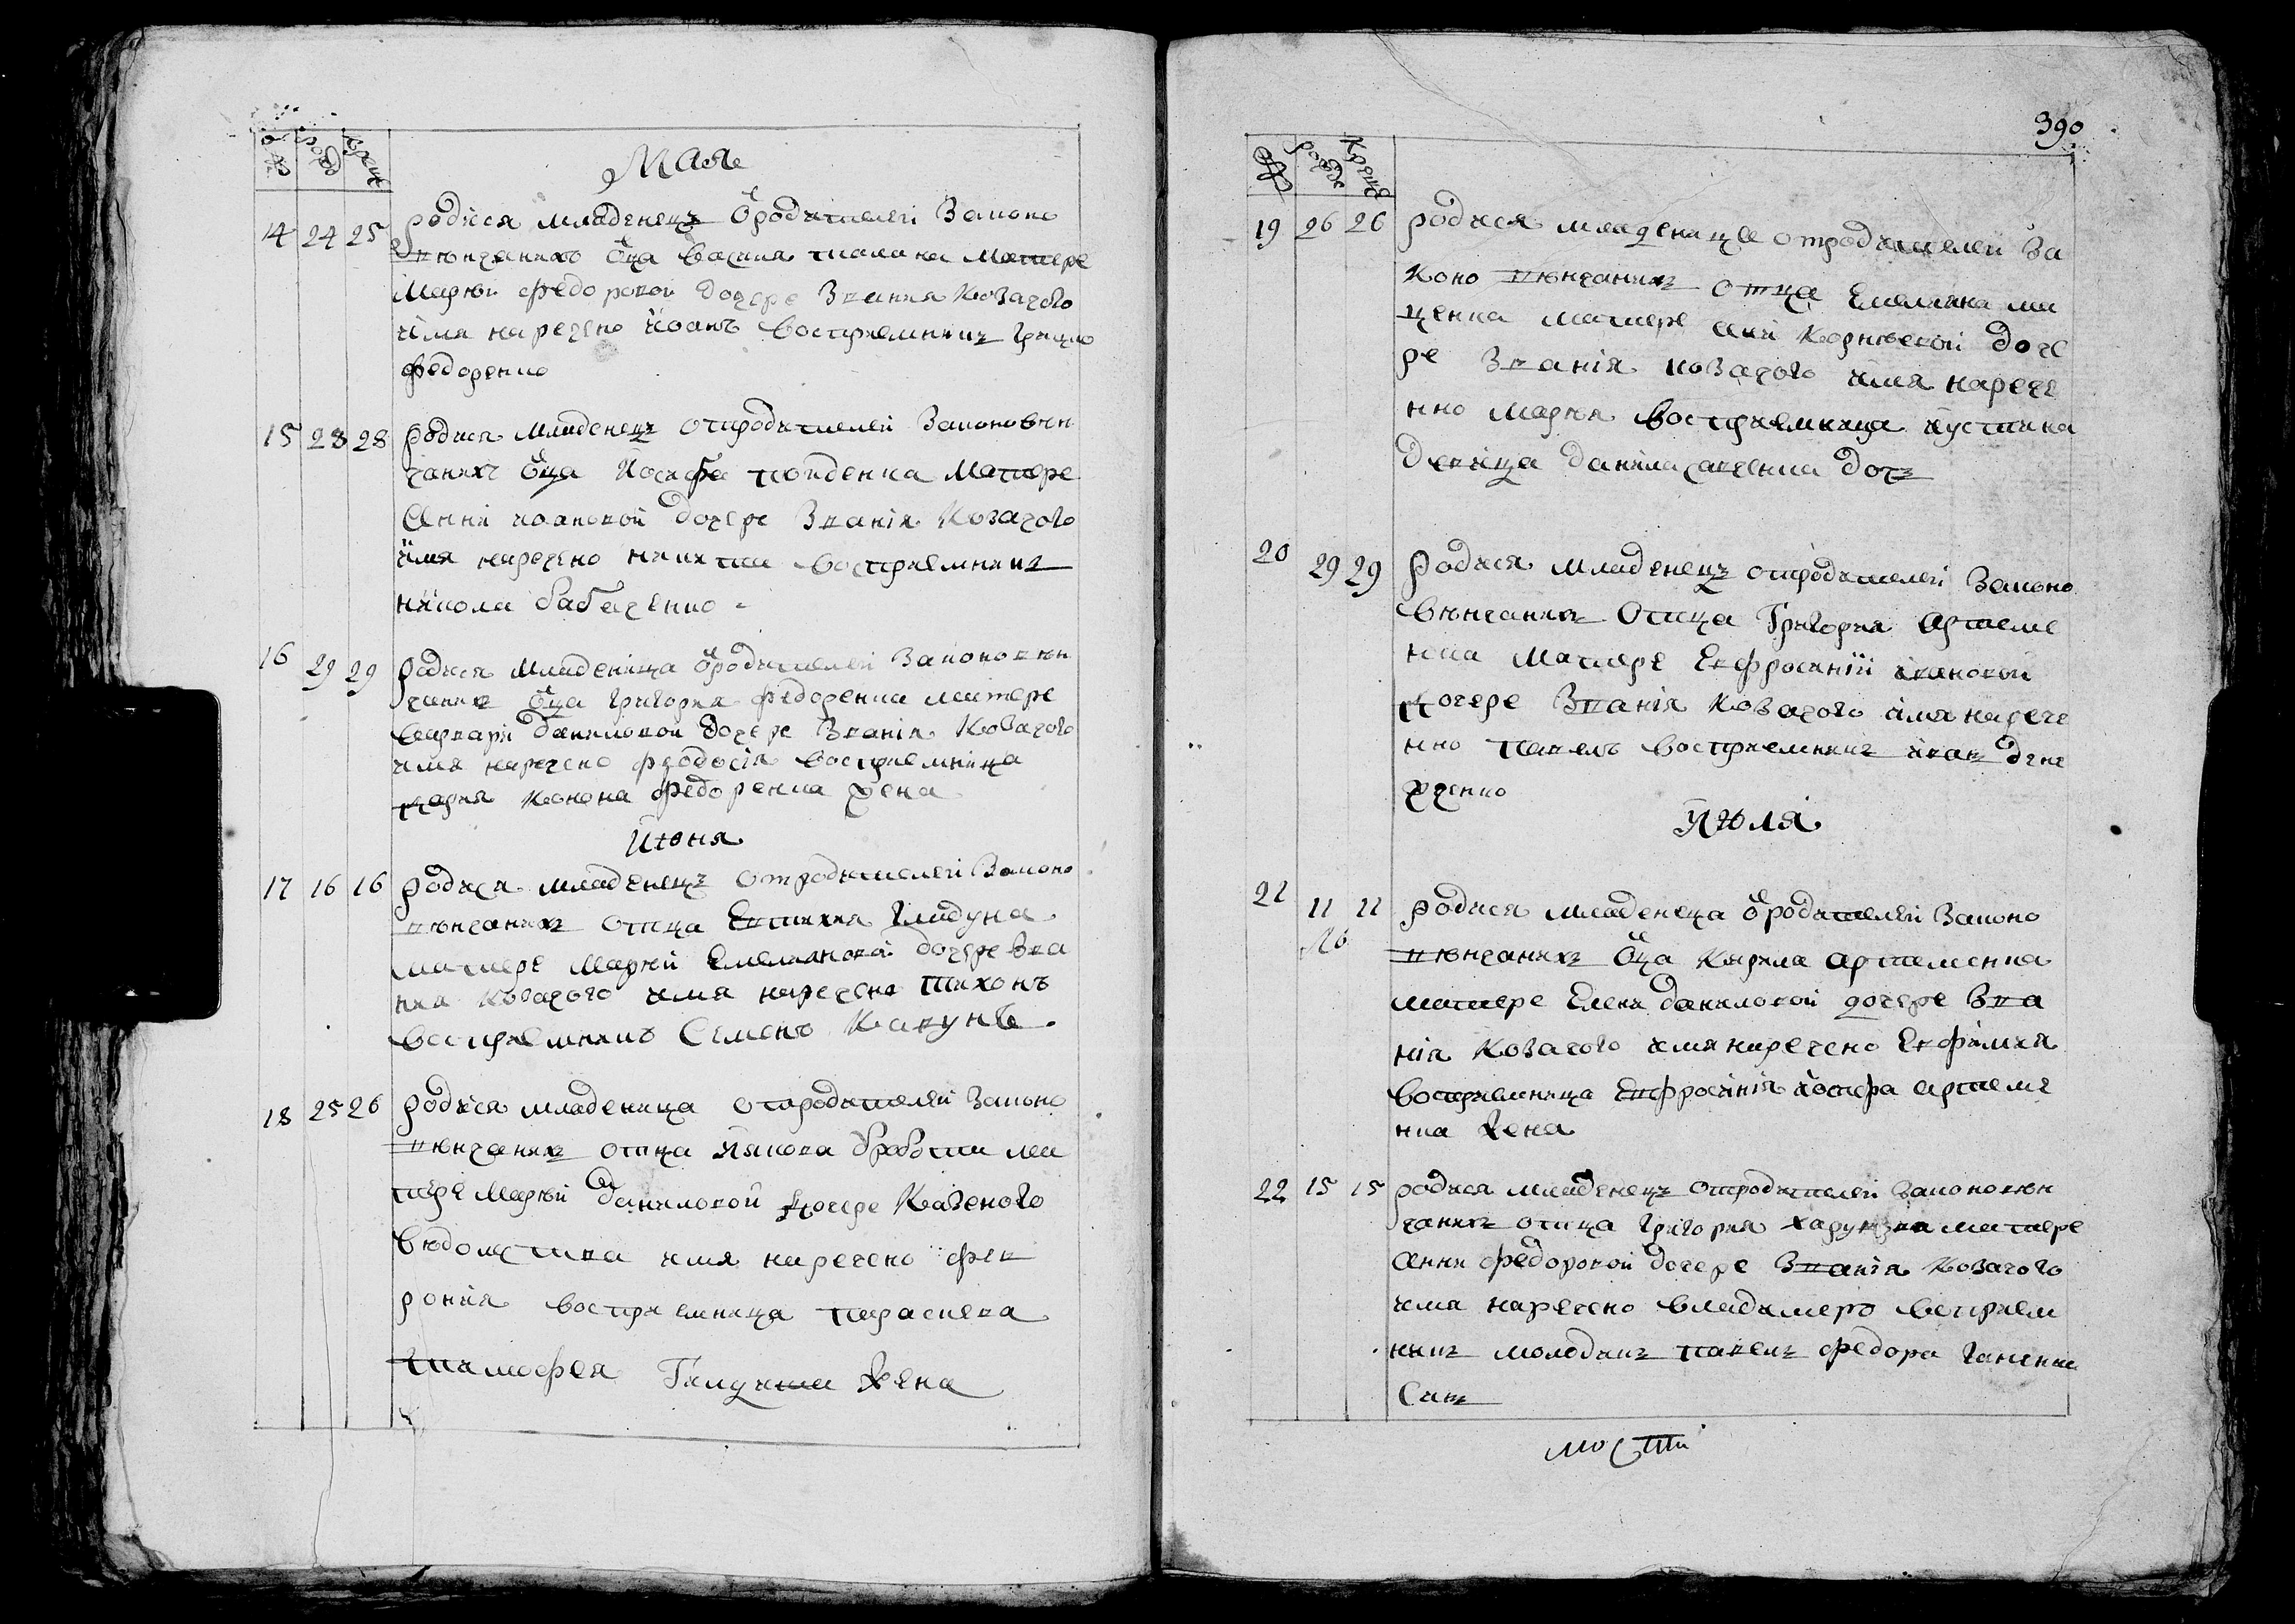 Мая
14 24 25 родися младенецъ ѿ родителей законо
вѣнчанихъ ѿца василия матере
Маріи федоровой дочере звания козачого
имя наречено иоанъ восприемникъ грицко
федоренко
15 28 28 родися младенецъ от родителей законовѣн
чанихъ ѿца Иосифа матере
Анни иоановой дочере званія козачого
имя наречено никита восприемникъ
никола бабаченко
16 29 29 родися младеница ѿ родителей законовѣн
чанихъ ѿца григория федоренка матере
варвари даниловой дочере званія козачого
имя наречено феодосія восприемница
дария конона федоренка жена
Июня
17 16 16 родися младенецъ от родителей законо
вѣнчанихъ отца Евтихия Гладуна
матере Маріи Емелиановой дочере зва
ния козачого имя наречено тихонъ
восприемникъ Семенъ Кавунъ
18 25 26 родися младеница от родителей законо
вѣнчанихъ отца Якова ма
тере Маріи даниловой дочере Казеного
вѣдомства имя наречено фев
рония восприемница параскева
тимофея жена
390
19 26 26 родися младеница от родителей за
коно вѣнчанихъ отца Емелияна
матере Корнѣевой доче
ре званія козачого имя нарече
нно Мария восприемница иустина
девица данила дочъ
20 29 29 родися младенецъ от родителей законо
вѣнчанихъ отца Григория Артеме
нка матере Евфросиніи ивановой
дочере званія козачого имя нарече
нно павелъ восприемникъ иванъ
Июля
21 11 11 родися младенеца ѿ родителей законо
вѣнчанихъ ѿца Кирила Артеменка
матере Елени даниловой дочере зва
нія козачого имя наречено Евфимия
восприемница Евфросінія иосифа артеме
нка жена
22 15 15 родися младенецъ от родителей законовѣн
чанихъ отца григория матере
Анни федоровой дочере званія козачого
имя наречено владимеръ восприем
никъ молодикъ павелъ федора
синъ